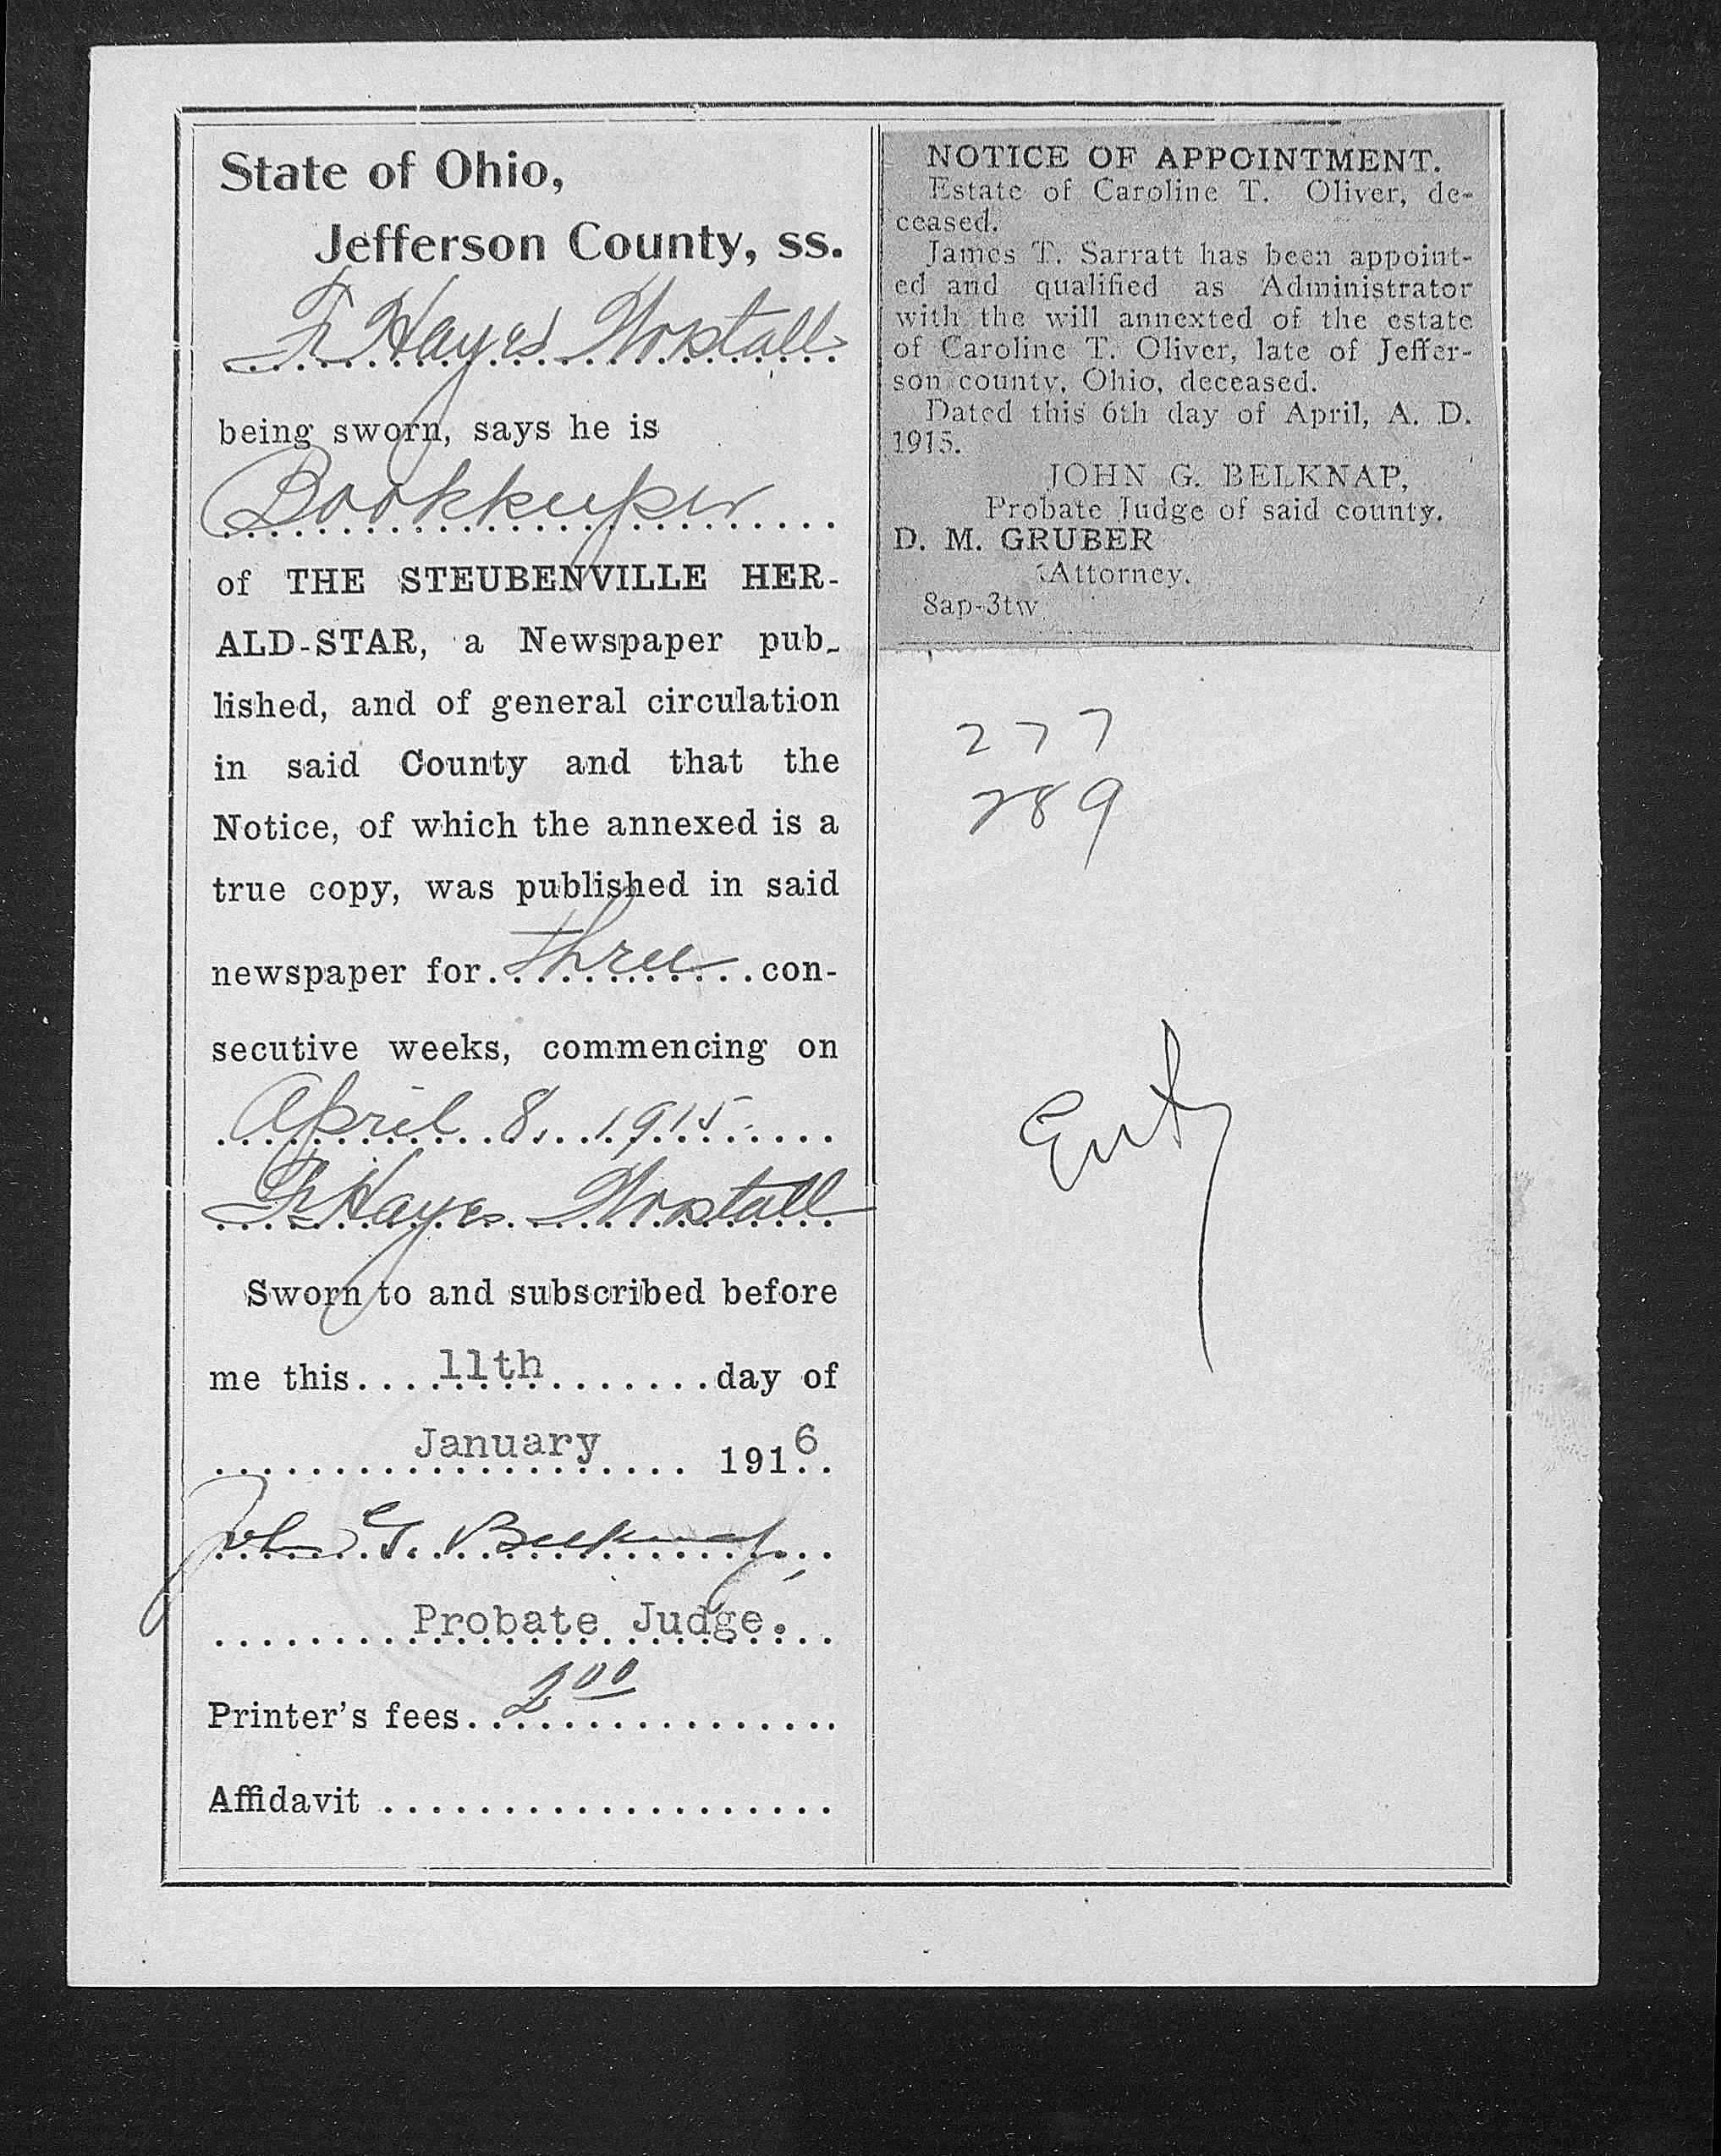 State of Ohio,
Jefferson County, ss.
F. Hayes Worstall
being sworn, says he is
Bookkeeper
of THE STEUBENVILLE HER-
ALD-STAR, a Newspaper pub-
lished, and of general circulation
in said County and that the
Notice, of which the annexed is a
true copy, was published in said
newspaper for. three con-
secutive weeks, commencing on
April 8, 1915.
F. Hayes Worstall
Sworn to and subscribed before
me this 11th day of
January 1916
John G. Belknap,
Probate Judge.
Printer's fees 2 00
Affidavit
NOTICE OF APPOINTMENT.
Estate of Caroline T. Oliver, de-
ceased.
James T. Sarratt has been appoint-
ed and qualified as Administrator
with the will annexted of the estate
of Caroline T. Oliver, late of Jeffer-
son county, Ohio, deceased.
Dated this 6th day of April, A. D.
1915.
JOHN G. BELKNAP,
Probate Judge of said county.
D. M. GRUBER
Attorney.
8ap-3tw
277
289